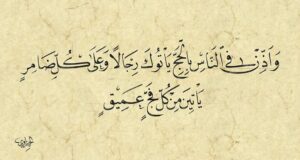 وَأَذِّنْ فِي النَّاسِ بِالْحَجِّ يَأْتُوكَ رِجَالًا وَعَلَىٰ كُلِّ ضَامِرٍ
يَأْتِينَ مِنْ كُلِّ فَجٍّ عَمِيقٍ